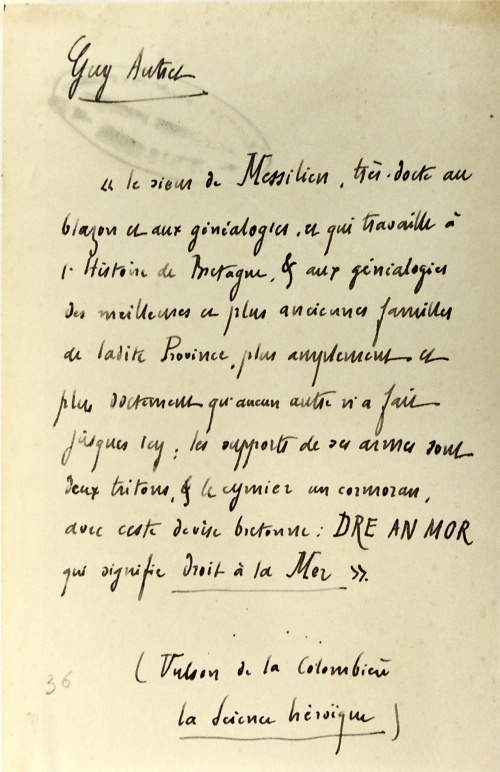 Guy Autret
« le sieur de Messilien, très-docte au
blazon et aux généalogies, et qui travaille à
l'Histoire de Bretagne, & aux généalogies
des meilleures et plus anciennes familles
de ladite Province, plus amplement et
plus doctement qu'aucun autre n'a fait
jusques icy ; les supports de ses armes sont
deux tritons, & le cymier un cormoran,
avec ceste devise bretonne : DRE AN MOR
qui signifie droit à la Mer ».
( Vulson de la Colombière
la Science héroïque )
36